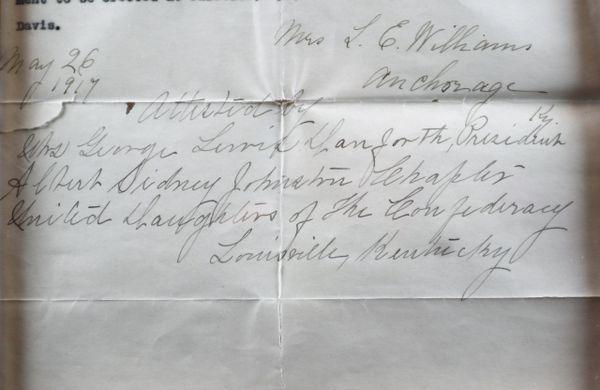 Davis.
Mrs L. E. Williams
May 26
1917
Anchorage
Ky.
Attested by
Mrs George Lewis Danforth, President
Albert Sidney Johnston Chapter
United Daughters of the Confederacy
Louisville, Kentucky